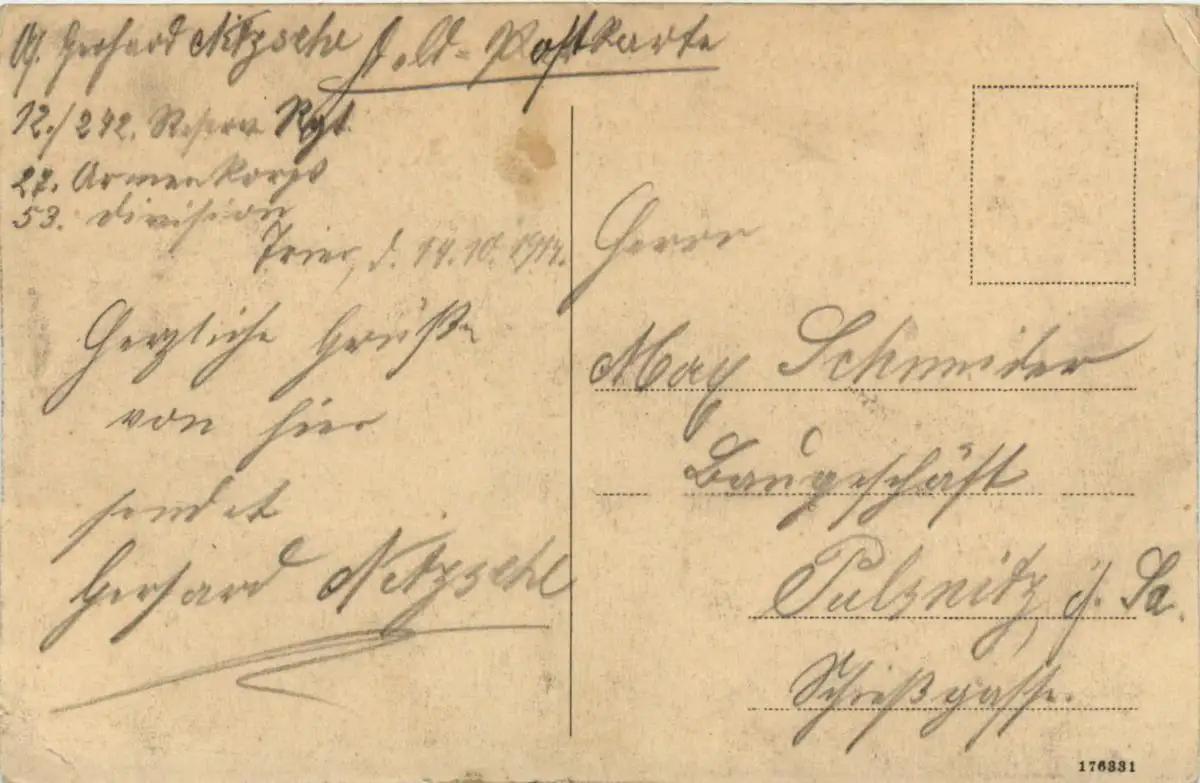 Gerhard Nitzsche Feld-Postkarte
12./242. Reserv Rgt.
27. Armeekorps
53. Division
Trier, d. 14.10.1914.
Herzliche Grüße
von hier
sendet
Gerhard Nitzsche
Herrn
Max Schneider
Baugeschäft
Pulsnitz i. Sa.
Schießgasse.
176331